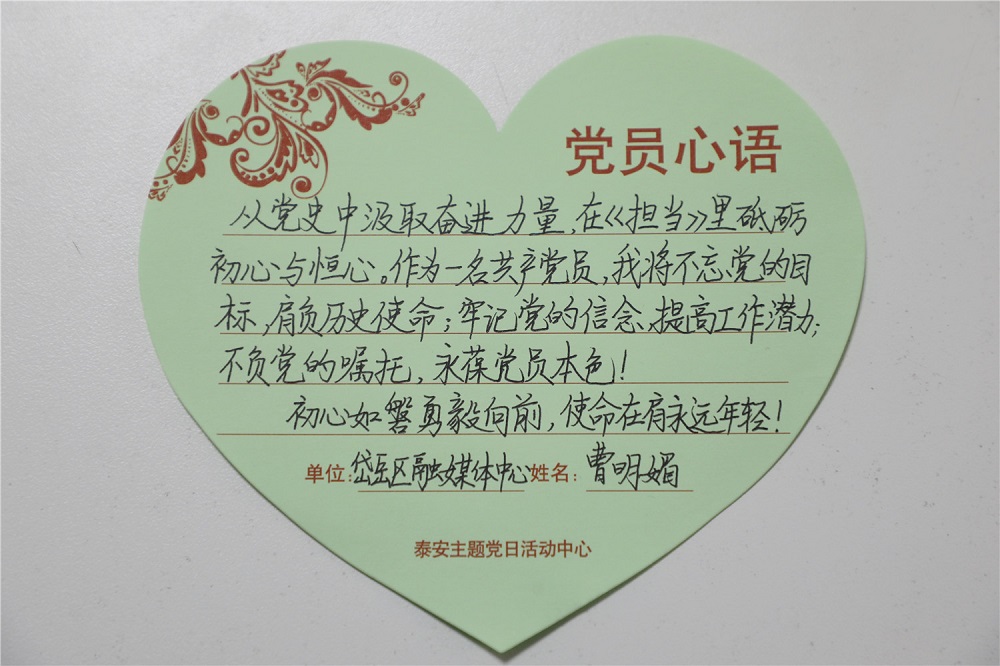 党员心语
从党史中汲取奋进力量,在《担当》里砥砺
初心与恒心。作为一名共产党员,我将不忘党的目
标,肩负历史使命;牢记党的信念、提高工作潜力;
不负党的嘱托,永葆党员本色!
初心如磐勇毅向前,使命在肩永远年轻!
单位:岱岳区融媒体中心 姓名:曹明媚
泰安主题党日活动中心